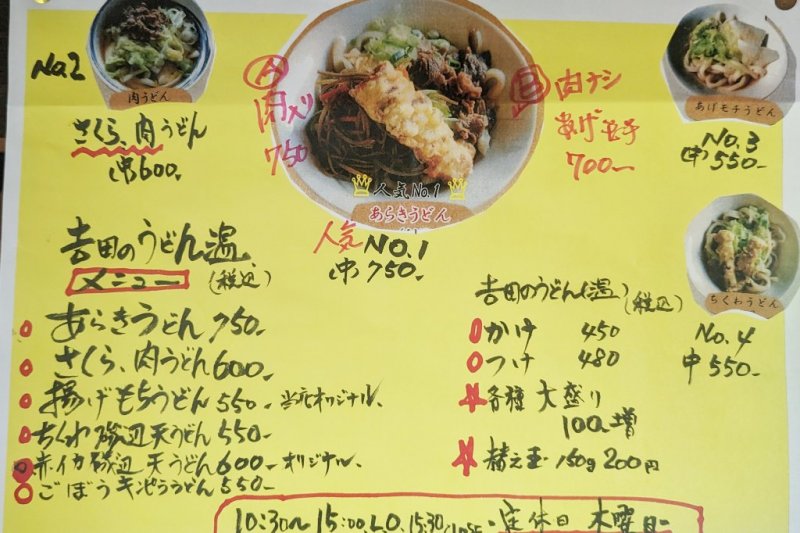 No.2
肉うどん
さくら、肉うどん
中600-
A
肉入り
750
人気No.1
あらきうどん
人気 NO.1
中750-
B
肉ナシ
あげモチ
700-
あげモチうどん
No.3
中550-
ちくわうどん
No.4
中550-
吉田のうどん温
メニュー (税込)
あらきうどん750-
さくら、肉うどん600-
揚げもちうどん550-当店オリジナル、
ちくわ磯辺天うどん550-
赤イカ磯辺天うどん600-オリジナル、
ごぼうキンピラうどん550-
吉田のうどん(温) (税込)
かけ 450
つけ 480
各種 大盛り
100増
替え玉 150g 200円
10:30~15:00,L.O. 15:30/CLOSE・定休日 木曜日-